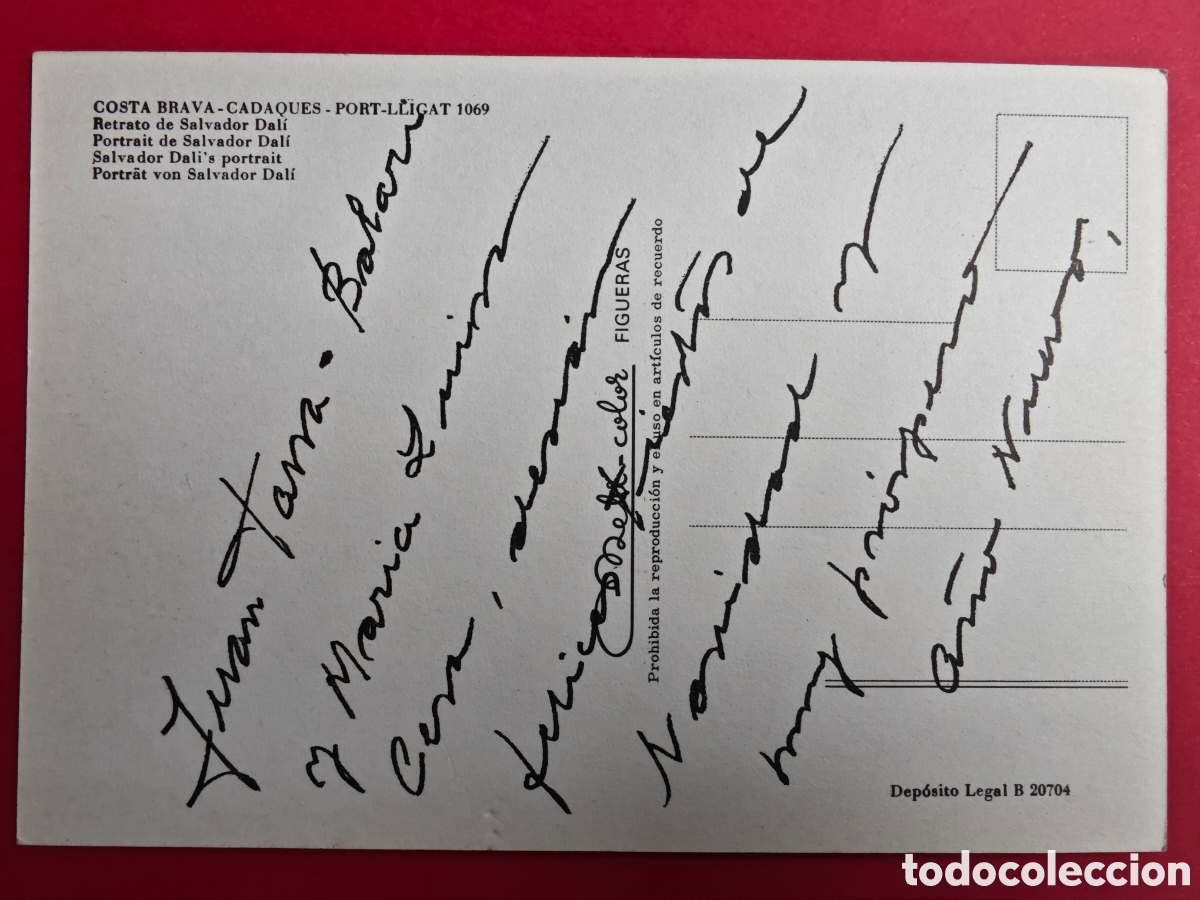 COSTA BRAVA - CADAQUES - PORT-LLIGAT 1069
Retrato de Salvador Dalí
Portrait de Salvador Dalí
Salvador Dali's portrait
Porträt von Salvador Dalí
Juan Parra - Batari
y Maria Luisa
Cera, desean
Felices Fiestas de
Navidad y
muy próspero
Año Nuevo,
color
FIGUERAS
Prohibida la reproducción y el uso en artículos de recuerdo
Depósito Legal B 20704
todocoleccion